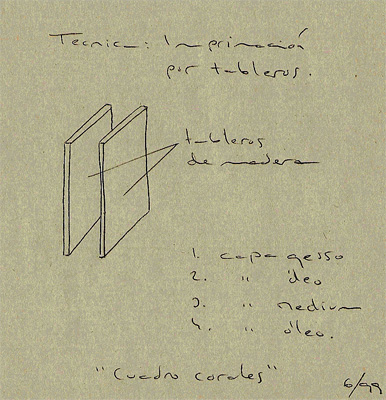 Tecnica: Imprimación
por tableros.
tableros
de madera
1. capa gesso
2. " óleo
3. " medium
4. " óleo.
"Cuadro corales"
6/99